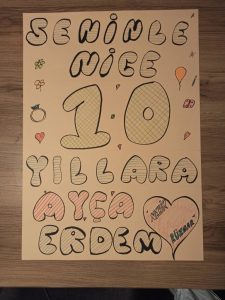 SENİNLE
NİCE
10
YILLARA
AYÇA
ERDEM